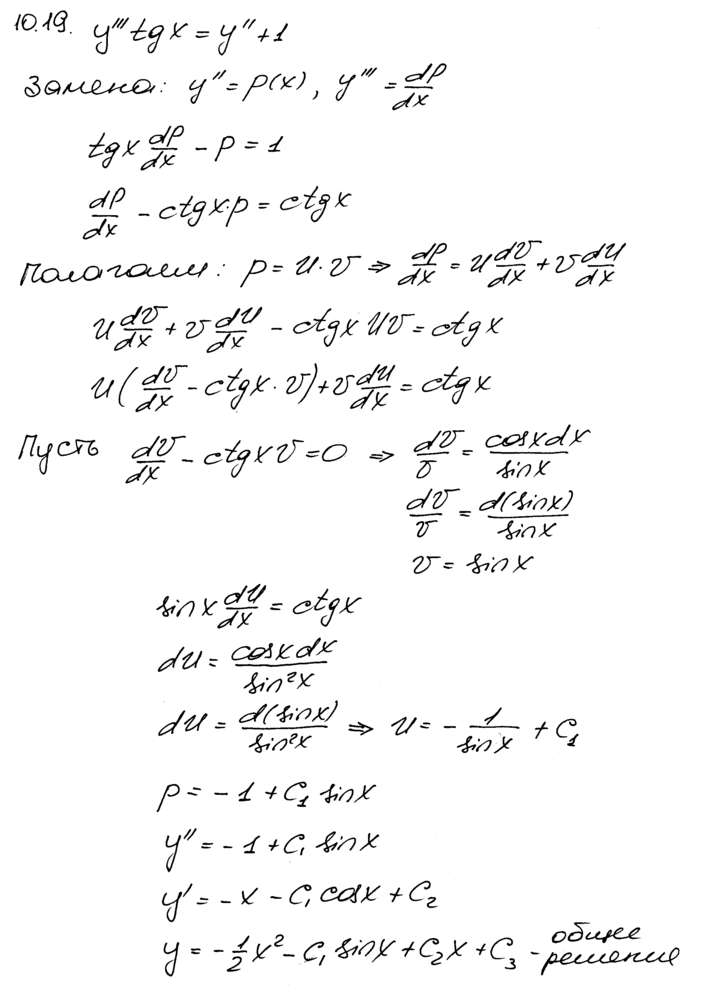 10.19. y''' tg x = y'' + 1
Замена: y'' = p(x), y''' = dp/dx
tg x dp/dx - p = 1
dp/dx - ctg x·p = ctg x
Полагаем: p = u·v ⇒ dp/dx = u dv/dx + v du/dx
u dv/dx + v du/dx - ctg x uv = ctg x
u(dv/dx - ctg x · v) + v du/dx = ctg x
Пусть dv/dx - ctg x v = 0 ⇒ dv/v = cos x dx/sin x
dv/v = d(sin x)/sin x
v = sin x
sin x du/dx = ctg x
du = cos x dx/sin²x
du = d(sin x)/sin²x ⇒ u = - 1/sin x + C₁
p = - 1 + C₁ sin x
y'' = - 1 + C₁ sin x
y' = - x - C₁ cos x + C₂
y = - 1/2 x² - C₁ sin x + C₂x + C₃ - общее решение